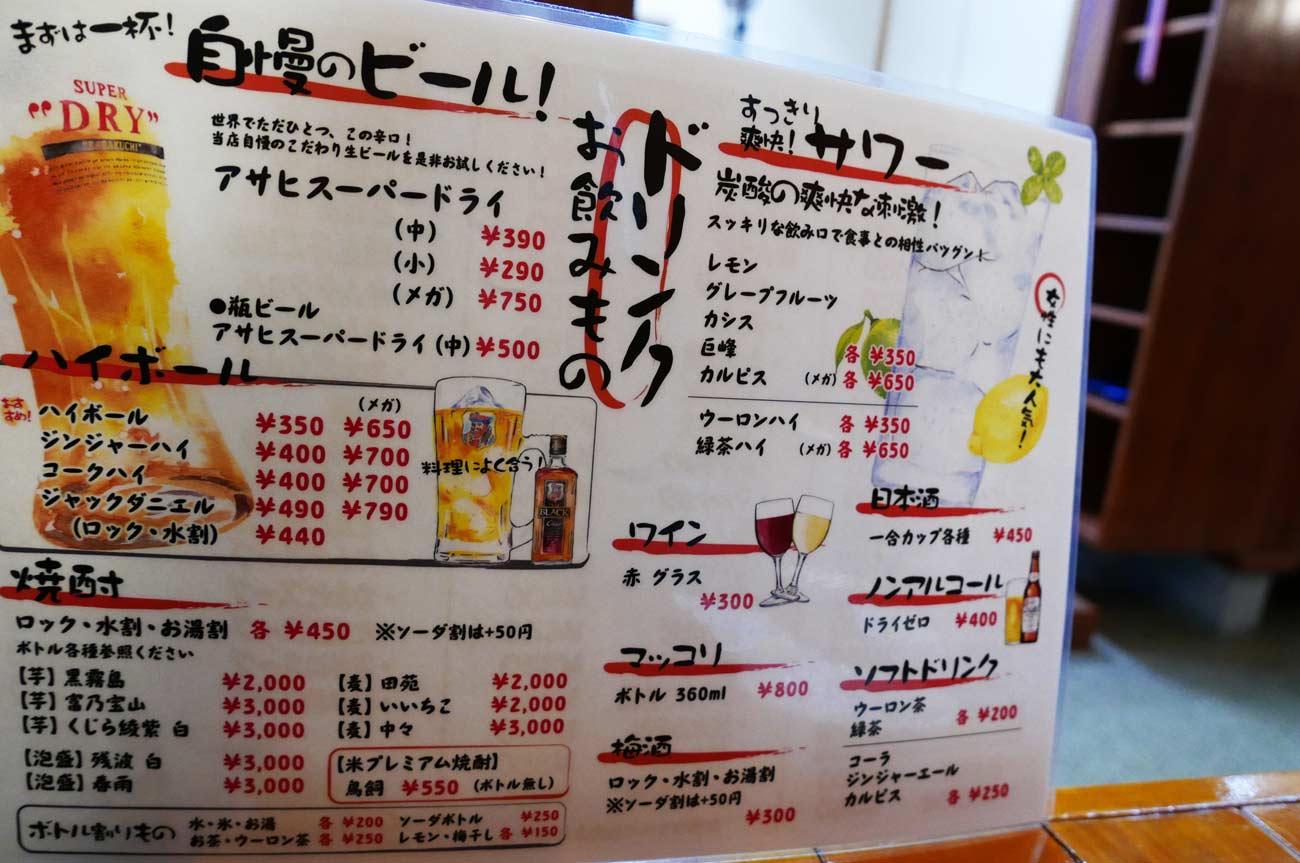 まずは一杯!
自慢のビール!
SUPER
"DRY"
世界でただひとつ、この辛口!
当店自慢のこだわり生ビールを是非お試しください!
アサヒスーパードライ
(中) ¥390
(小) ¥290
(メガ) ¥750
●瓶ビール
アサヒスーパードライ(中) ¥500
ハイボール
おすすめ!
(メガ)
ハイボール ¥350 ¥650
ジンジャーハイ ¥400 ¥700
コークハイ ¥400 ¥700
ジャックダニエル ¥490 ¥790
(ロック・水割) ¥440
料理によく合う!
BLACK
焼酎
ロック・水割・お湯割 各 ¥450 ※ソーダ割は+50円
ボトル各種参照ください
【芋】黒霧島 ¥2,000
【芋】富乃宝山 ¥3,000
【芋】くじら綾紫 白 ¥3,000
【泡盛】残波 白 ¥3,000
【泡盛】春雨 ¥3,000
【麦】田苑 ¥2,000
【麦】いいちこ ¥2,000
【麦】中々 ¥3,000
【米プレミアム焼酎】
鳥飼 ¥550 (ボトル無し)
ボトル割りもの
水・氷・お湯 各 ¥200 ソーダボトル ¥250
お茶・ウーロン茶 各 ¥250 レモン・梅干し 各 ¥150
ドリンク
お飲みもの
すっきり
爽快!サワー
炭酸の爽快な刺激!
スッキリな飲み口で食事との相性バツグン!
レモン
グレープフルーツ
カシス
巨峰 各 ¥350
カルピス (メガ) 各 ¥650
ウーロンハイ 各 ¥350
緑茶ハイ (メガ) 各 ¥650
女性にも大人気!
ワイン
赤 グラス
¥300
マッコリ
ボトル 360ml ¥800
梅酒
ロック・水割・お湯割
※ソーダ割は+50円
¥300
日本酒
一合カップ各種 ¥450
ノンアルコール
ドライゼロ ¥400
ソフトドリンク
ウーロン茶
緑茶 各 ¥200
コーラ
ジンジャーエール
カルピス 各 ¥250